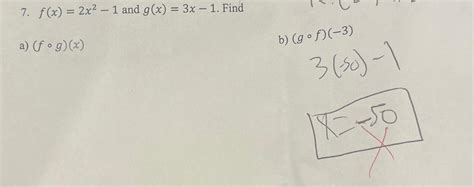 7. f(x) = 2x² − 1 and g(x) = 3x − 1. Find
a) (f ∘ g)(x)
b) (g ∘ f)(−3)
3(-50) - 1
x = -50